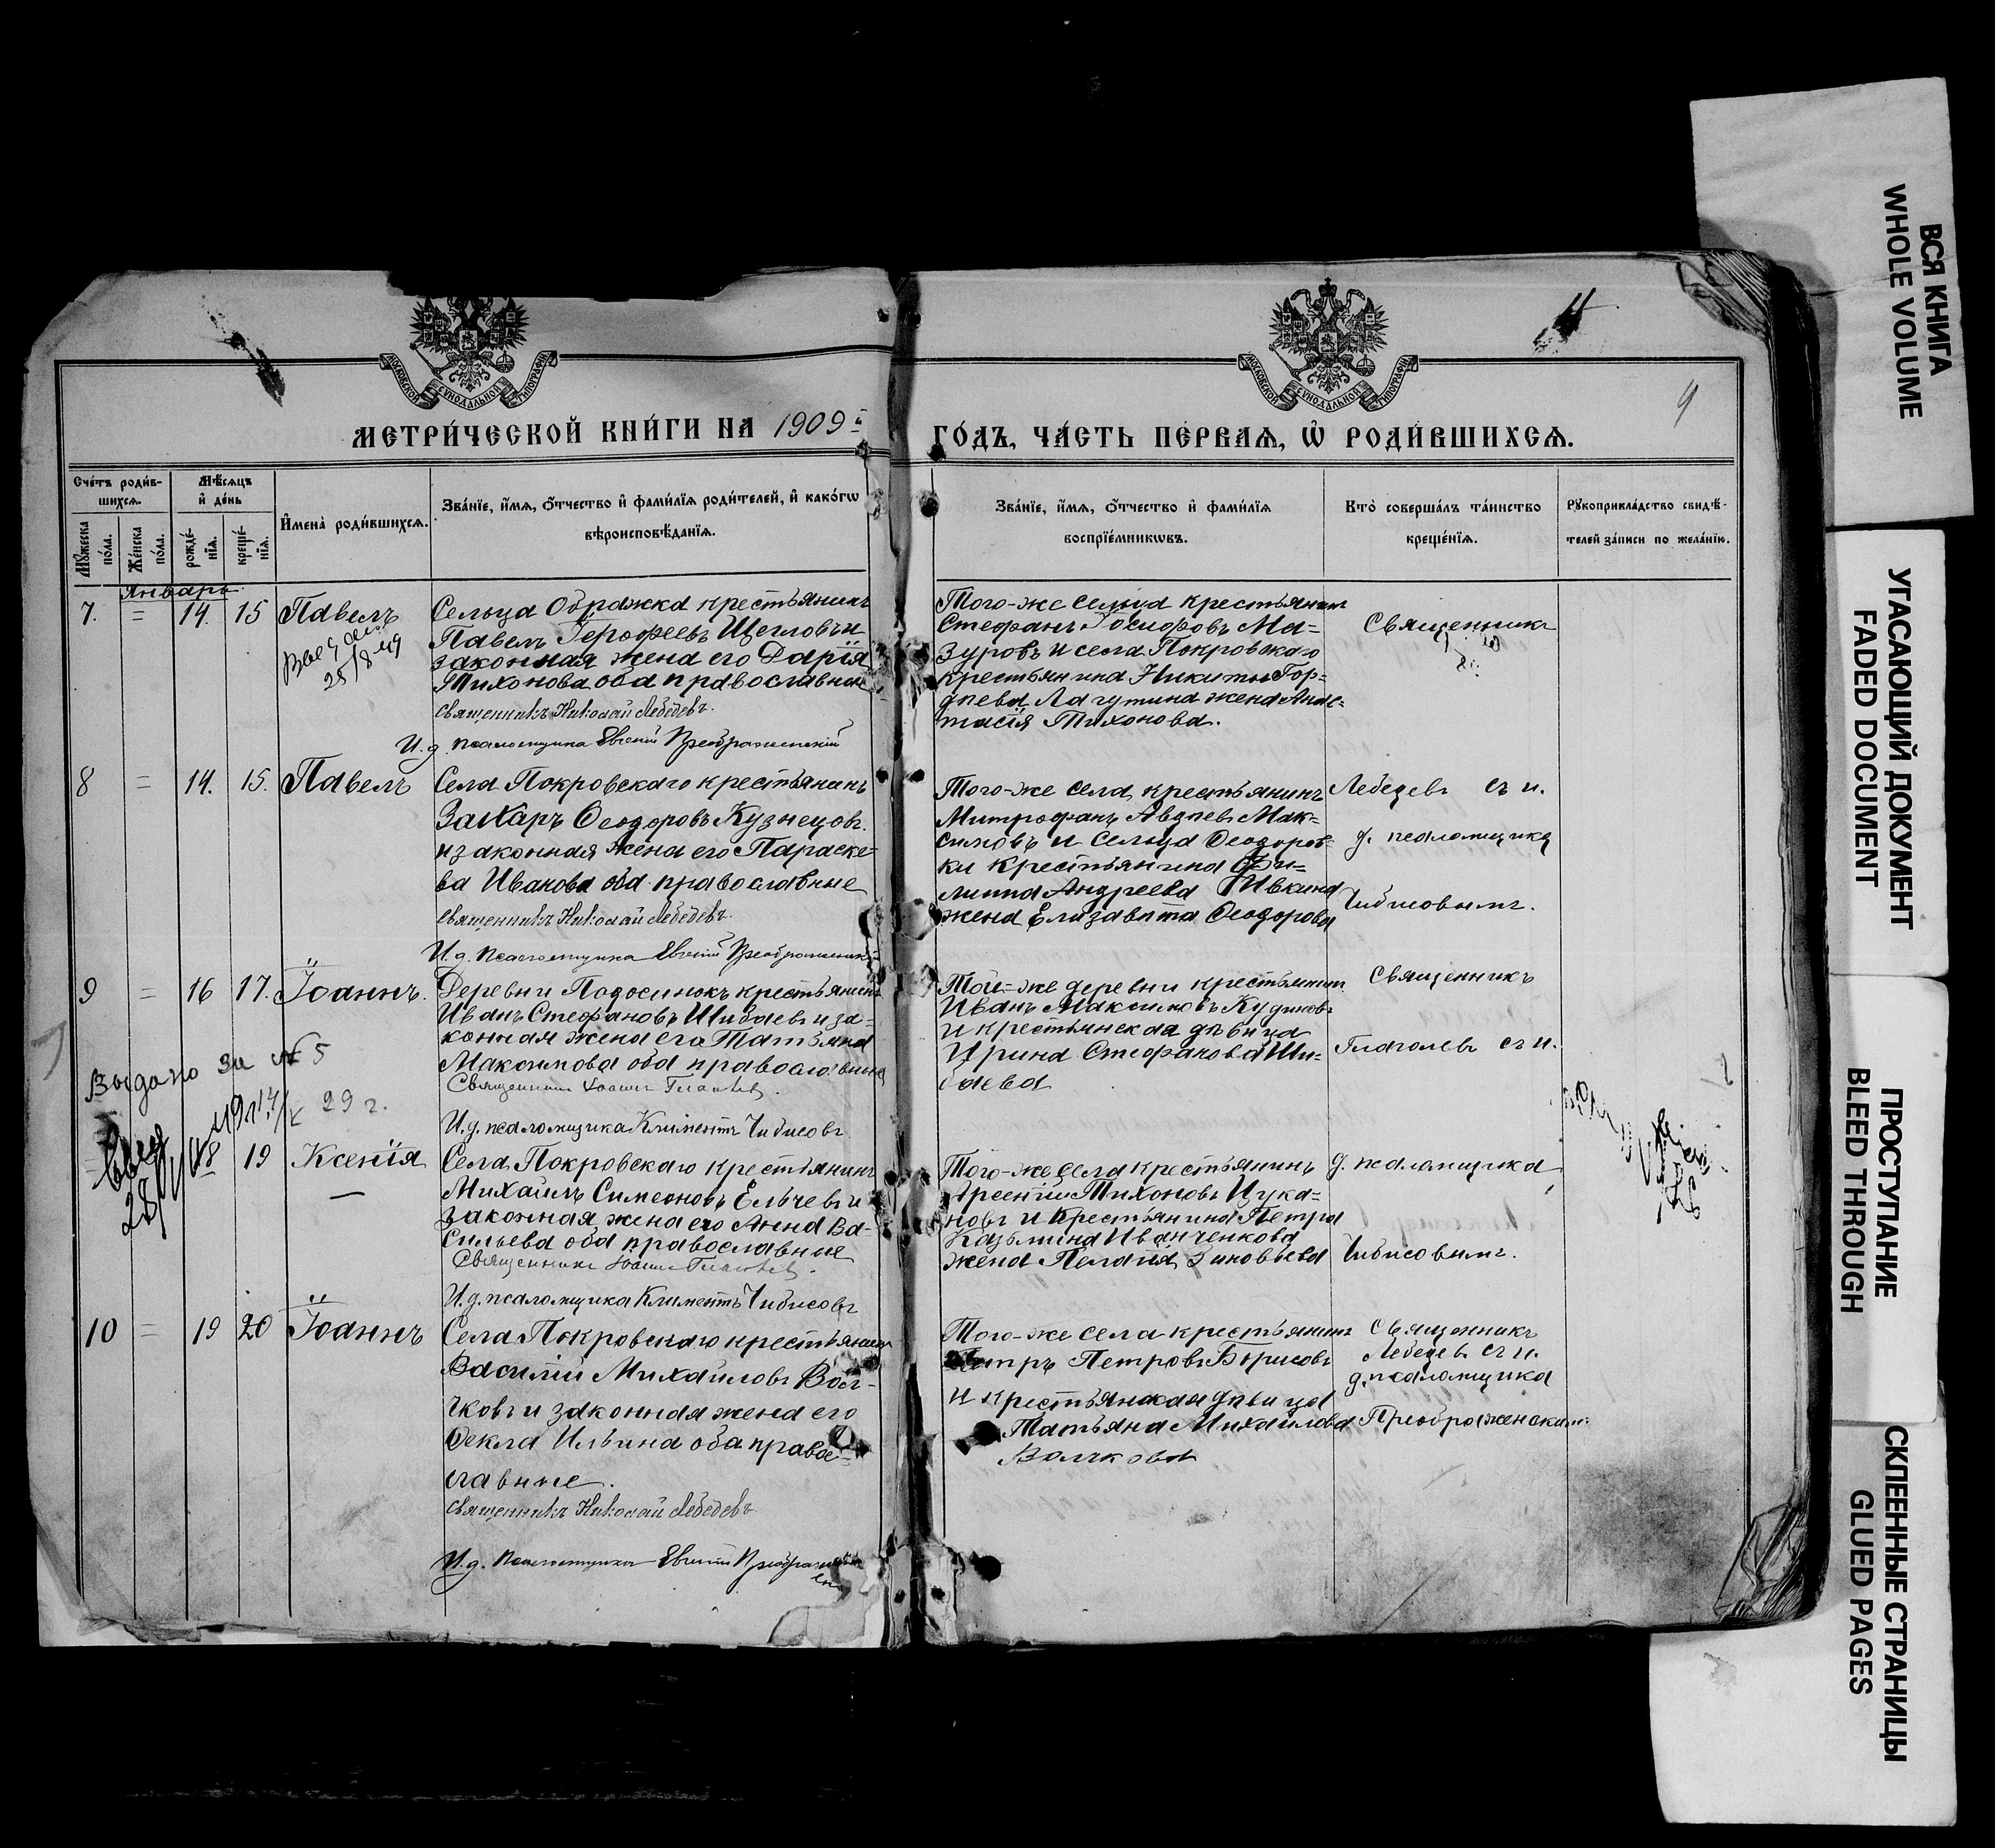 МОСКОВСКОЙ СѴНОДАЛЬНОЙ ТИПОГРАФІИ
МОСКОВСКОЙ СѴНОДАЛЬНОЙ ТИПОГРАФІИ
9
МЕТРИ́ЧЕСКОЙ КНИ́ГИ НА 1909й
ГО́ДЪ, ЧА́СТЬ ПЕ́РВАѦ, Ѡ҆ РОДИ́ВШИХСѦ.
Сче́тъ роди́в-
шихсѧ.
Мꙋ́жеска по́ла.
Же́нска по́ла.
Мѣ́сѧцъ
и҆ де́нь
рожде́-
нїѧ.
креще́-
нїѧ.
И҆мена̀ роди́вшихсѧ.
Зва́нїе, и҆́мѧ, ѻ҆́тчество и҆ фами́лїѧ роди́телей, и҆ како́гѡ
вѣроисповѣ́данїѧ.
Зва́нїе, и҆́мѧ, ѻ҆́тчество и҆ фами́лїѧ
воспрїе́мникѡвъ.
Кто̀ соверша́лъ та́инство
креще́нїѧ.
Рꙋкоприкла́дство свидѣ́-
телей за́писи по жела́нїю.
Январь
7. = 14. 15 Павелъ
28/8-49
Сельца Ображка крестьянинъ
Павелъ Герофеевъ Щегловъ и
законная жена его Дарія
Тихонова оба православные
Священникъ Николай Лебедевъ.
И.д. псаломщика Евгеній Преображенскій
Того-же сельца крестьянинъ
Стефанъ Іосифовъ Ма=
зуровъ и села Покровскаго
крестьянина Никиты Гор=
деева Лагутина жена Анас=
тасія Тихонова.
Священникъ
8 = 14. 15. Павелъ
Села Покровскаго крестьянинъ
Захаръ Ѳеодоровъ Кузнецовъ.
и законная жена его Параске=
ва Иванова оба православные
Священникъ Николай Лебедевъ.
И.д. псаломщика Евгеній Преображенскій
Того-же села крестьянинъ
Митрофанъ Авдѣевъ Мак=
симовъ и сельца Ѳеодоров=
ки крестьянина Фи=
липпа Андреева Ивкина
жена Елизавета Ѳеодорова
Лебедевъ съ и.
д. псаломщика
Чибисовымъ.
9 = 16 17. Іоаннъ.
Деревни Подосинокъ крестьянинъ
Иванъ Стефановъ Шибаевъ и за=
конная жена его Татьяна
Максимова оба православные
Священникъ Іоаннъ Глаголевъ.
И.д. псаломщика Климентъ Чибисовъ
Той-же деревни крестьянинъ
Иванъ Максимовъ Кудиновъ
и крестьянская дѣвица
Ирина Стефанова Ши=
баева
Священникъ
Глаголевъ съ и.
Выдано за № 5
29 г.
18 19 Ксенія
Села Покровскаго крестьянинъ
Михаилъ Симеоновъ Ельчевъ и
законная жена его Анна Ва=
сильева оба православные
Священникъ Іоаннъ Глаголевъ.
И.д. псаломщика Климентъ Чибисовъ
Того-же села крестьянинъ
Арсеній Тихоновъ Цука=
новъ и крестьянина Петра
Казьмина Иванченкова
жена Пелагія Зиновьева
д. псаломщика
Чибисовымъ.
10 = 19 20 Іоаннъ
Села Покровскаго крестьянинъ
Василій Михайловъ Вол=
чковъ и законная жена его
Ѳекла Ильина оба право=
славные.
Священникъ Николай Лебедевъ
И.д. псаломщика Евгеній Преображенскій
Того-же села крестьянинъ
Петръ Петровъ Борисовъ
и крестьянская дѣвица
Татьяна Михайлова
Волчкова
Священникъ
Лебедевъ съ и.
д. псаломщика
Преображенскимъ
ВСЯ КНИГА
WHOLE VOLUME
УГАСАЮЩИЙ ДОКУМЕНТ
FADED DOCUMENT
ПРОСТУПАНИЕ
BLEED THROUGH
СКЛЕЕННЫЕ СТРАНИЦЫ
GLUED PAGES